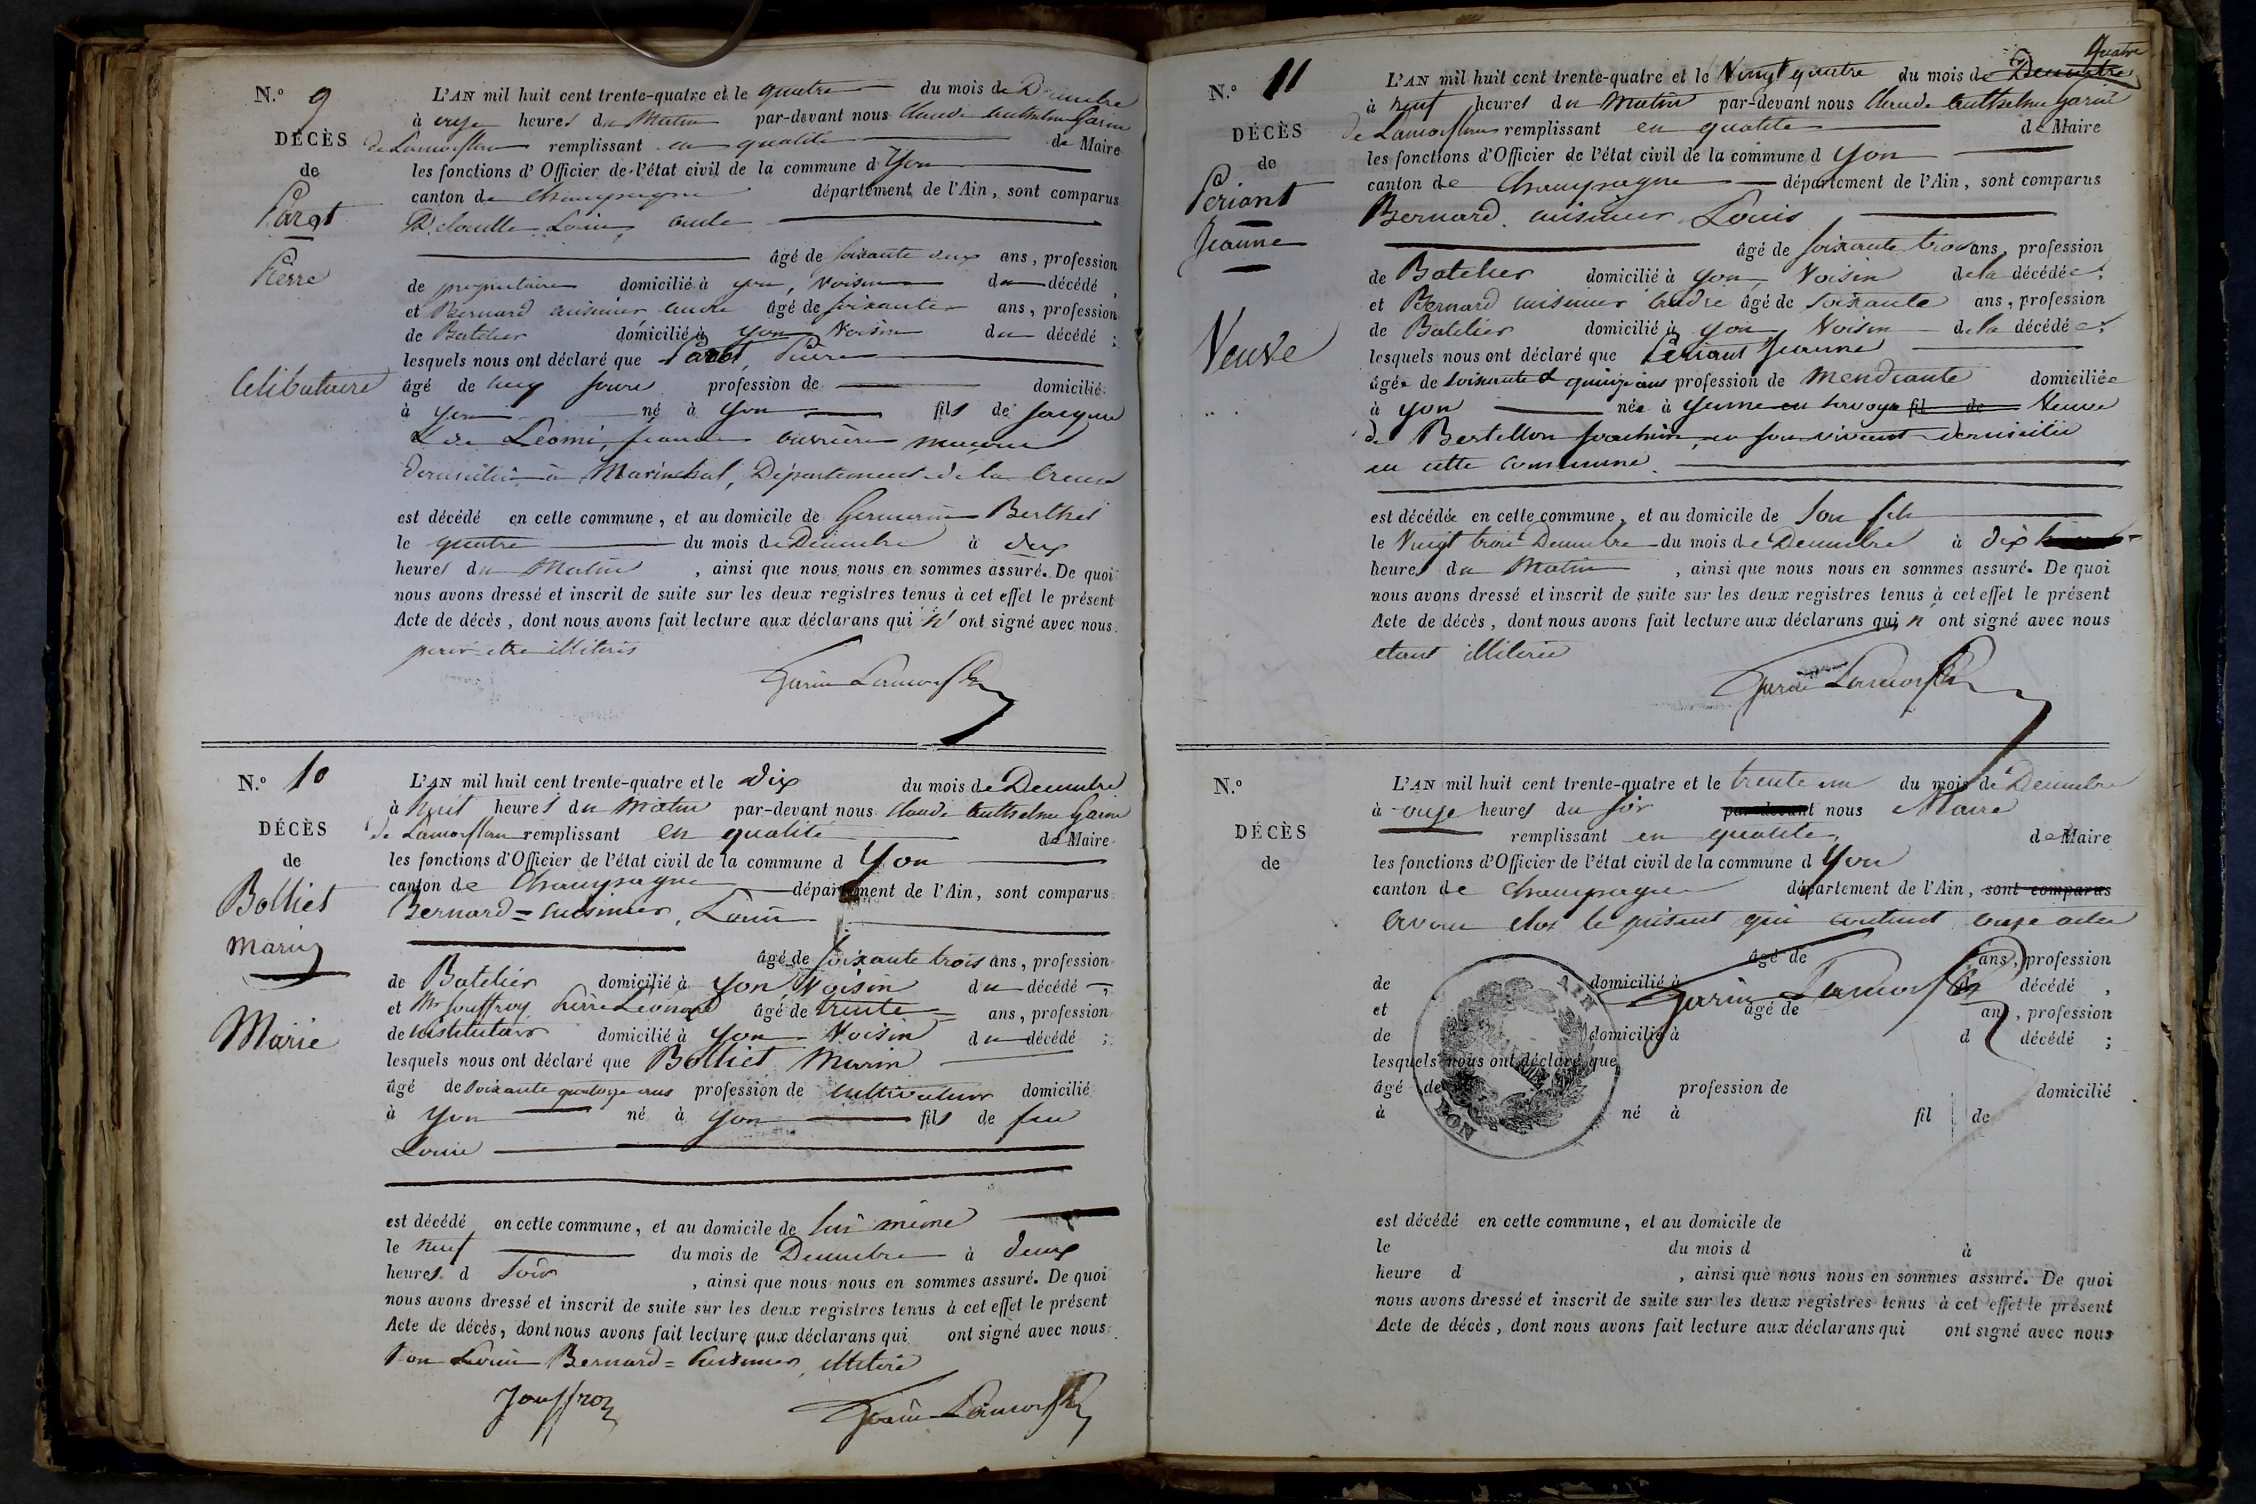 N.° 9
DÉCÈS
de
Parot
Pierre
Célibataire
L'AN mil huit cent trente-quatre et le quatre du mois de Décembre
à onze heures du Matin par-devant nous Claude Anthelme Garin
de Lamorflan remplissant en qualité de Maire
les fonctions d'Officier de l'état civil de la commune d'Yon
canton de Champagne département de l'Ain, sont comparus
Louis
âgé de soixante deux ans, profession
de propriétaire domicilié à yon, voisin du décédé,
et Bernard cuisinier andré âgé de soixante ans, profession
de Batelier domicilié à yon Voisin du décédé;
lesquels nous ont déclaré que Parot Pierre
âgé de cinq jours profession de domicilié
à yon né à yon fils de Jacques
& de Leomi ouvrier maçon
domicilié à Département de la Creuse
est décédé en cette commune, et au domicile de Germain Berthet
le quatre du mois de Décembre à dix
heures du Matin, ainsi que nous nous en sommes assuré. De quoi
nous avons dressé et inscrit de suite sur les deux registres tenus à cet effet le présent
Acte de décès, dont nous avons fait lecture aux déclarans qui n' ont signé avec nous.
pour être illitérés
Garin Lamorflan
N.° 10
DÉCÈS
de
Bolliet
Marin
Marié
L'AN mil huit cent trente-quatre et le dix du mois de Décembre
à huit heures du Matin par-devant nous Claude Anthelme Garin
de Lamorflan remplissant en qualité de Maire
les fonctions d'Officier de l'état civil de la commune d Yon
canton de Champagne département de l'Ain, sont comparus
Bernard = cuisinier, Louis
âgé de soixante trois ans, profession
de Batelier domicilié à Yon Voisin du décédé,
et Mr Jouffroy Pierre Léonard âgé de trente ans, profession
de instituteur domicilié à Yon Voisin du décédé;
lesquels nous ont déclaré que Bolliet Marin
âgé de soixante quatorze ans profession de cultivateur domicilié
à Yon né à Yon fils de feu
Louis
est décédé en cette commune, et au domicile de lui même
le neuf du mois de Décembre à deux
heures d soir, ainsi que nous nous en sommes assuré. De quoi
nous avons dressé et inscrit de suite sur les deux registres tenus à cet effet le présent
Acte de décès, dont nous avons fait lecture aux déclarans qui ont signé avec nous.
non Louis Bernard = Cuisinier, illitéré
Jouffroy Garin Lamorflan
Quatre
N.° 11
DÉCÈS
de
Périant
Jeanne
Veuve
L'AN mil huit cent trente-quatre et le Vingt quatre du mois de Décembre
à neuf heures du Matin par-devant nous Claude Anthelme Garin
de Lamorflan remplissant en qualité de Maire
les fonctions d'Officier de l'état civil de la commune d Yon
canton de Champagne département de l'Ain, sont comparus
Bernard cuisinier Louis
âgé de soixante trois ans, profession
de Batelier domicilié à Yon, Voisin de la décédée;
et Bernard cuisinier André âgé de soixante ans, profession
de Batelier domicilié à yon, Voisin de la décédée;
lesquels nous ont déclaré que Périant Jeanne
âgée de soixante & quinze ans profession de mendiante domiciliée
à yon née à Yenne en Savoye fil de Veuve
de Bertillon en son vivant domicilié
en cette commune.
est décédée en cette commune, et au domicile de son fils
le Vingt trois Décembre du mois de Décembre à dix
heures du Matin, ainsi que nous nous en sommes assuré. De quoi
nous avons dressé et inscrit de suite sur les deux registres tenus à cet effet le présent
Acte de décès, dont nous avons fait lecture aux déclarans qui n' ont signé avec nous
étant illitérés
Garin Lamorflan
N.°
DÉCÈS
de
L'AN mil huit cent trente-quatre et le trente un du mois de Décembre
à onze heures du soir par-devant nous Maire
remplissant en qualité de Maire
les fonctions d'Officier de l'état civil de la commune d Yon
canton de Champagne département de l'Ain, sont comparus
avons clos le présent qui contient onze actes
âgé de ans, profession
de domicilié à décédé,
Garin Lamorflan
et âgé de ans, profession
de domicilié à d décédé;
lesquels nous ont déclaré que
âgé de profession de domicilié
à né à fil de
AIN
YON
est décédé en cette commune, et au domicile de
le du mois d à
heure d, ainsi que nous nous en sommes assuré. De quoi
nous avons dressé et inscrit de suite sur les deux registres tenus à cet effet le présent
Acte de décès, dont nous avons fait lecture aux déclarans qui ont signé avec nous